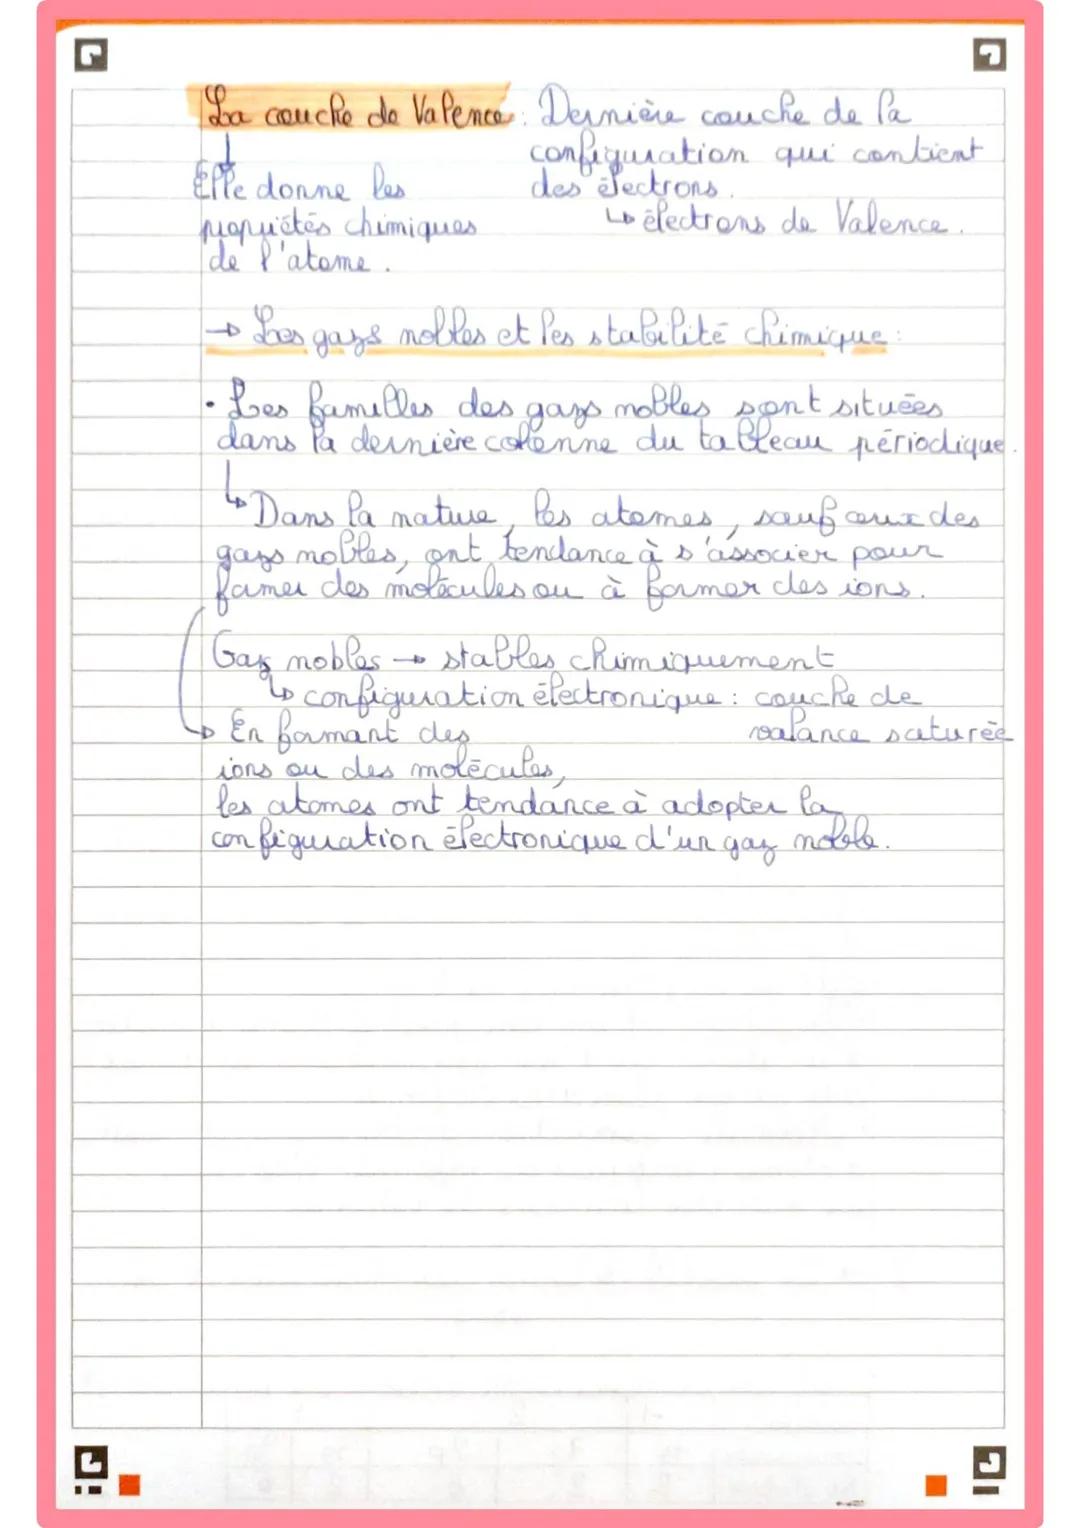 La couche de Valence : Dernière couche de la
configuration qui contient
des électrons.
↳ électrons de Valence.
Elle donne les
propriétés chimiques
de l'atome.
→ Les gazs nobles et les stabilité chimique :
• Les familles des gazs nobles sont situées
dans la dernière colonne du tableau périodique.
↳ Dans la nature, les atomes, sauf ceux des
gazs nobles, ont tendance à s'associer pour
former des molécules ou à former des ions.
Gaz nobles → stables chimiquement
↳ configuration électronique : couche de
valance saturée
↳ En formant des
ions ou des molécules,
les atomes ont tendance à adopter la
configuration électronique d'un gaz noble.